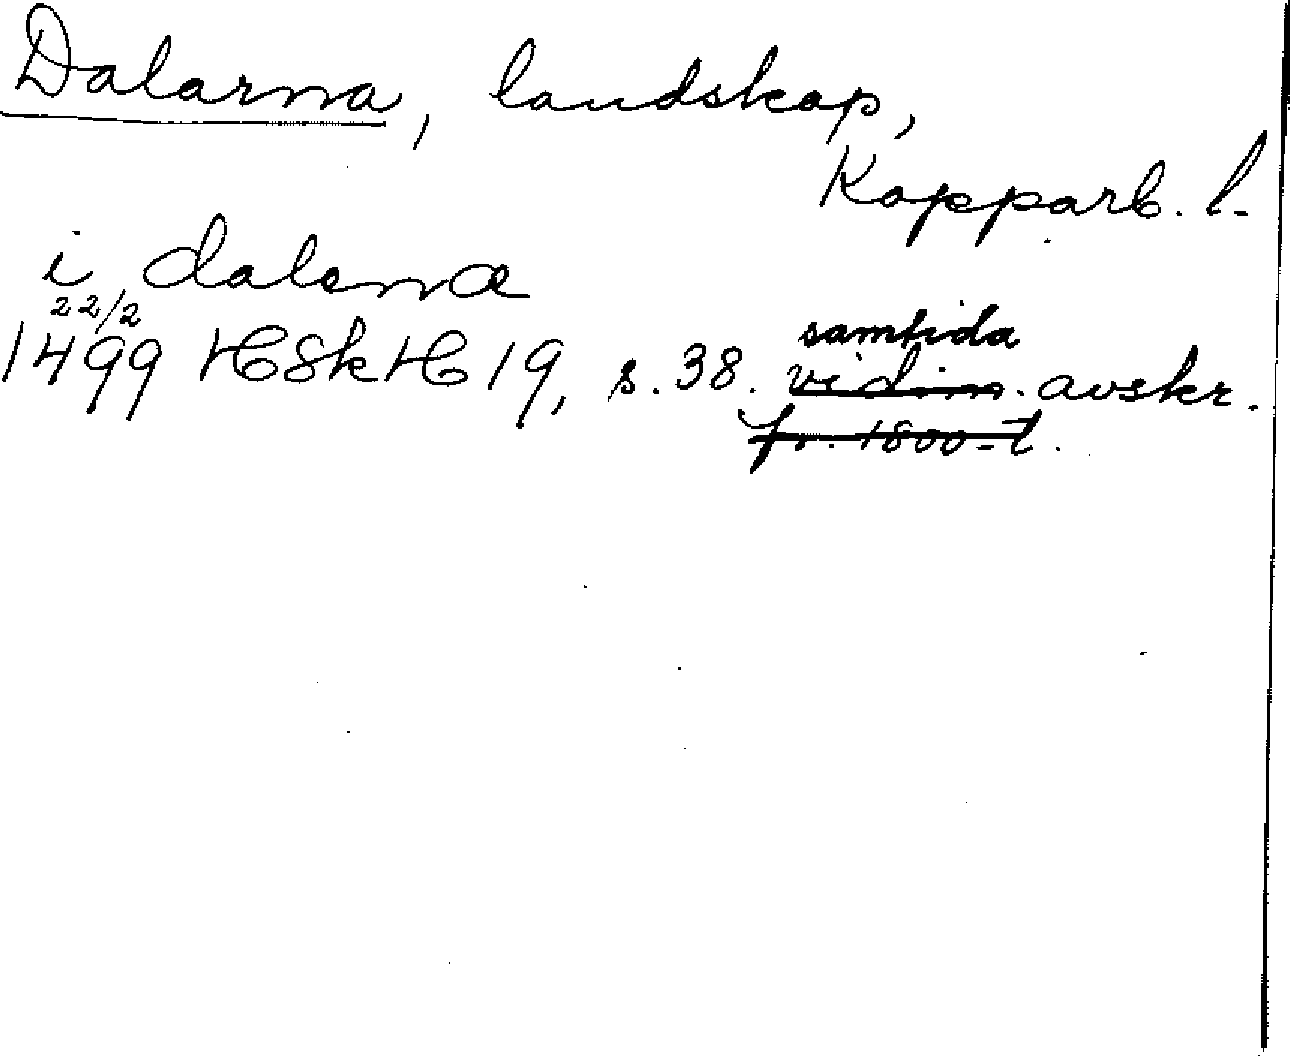 Dalarna, landskap,
Kopparb. l.
i dalernæ
22/2
1499 HSkH 19, s. 38. samtida vidim. avskr.
fr. 1800-t.